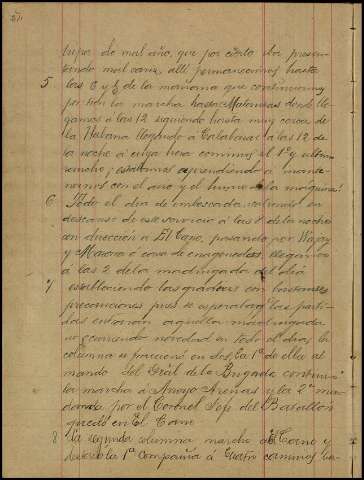 tripa de mal año, que por cierto iba presen-
tando mal cariz, allí permanecimos hasta
5 las 6 y ½ de la mañana que continuamos
por tren la marcha hasta Matanzas donde lle-
gamos a las 12 siguiendo hasta muy cerca de
la Habana llegando a Calabazar a las 12 de
la noche á cuya hora comimos el 1º y ultimo
rancho; estabamos aprendiendo á mante-
nernos con el aire y el humo de la maquina!
6 Todo el dia de emboscada, saliendo en
descanso de este servicio á las 8 de la noche
en dirección a El Cano, pasando por Wajay
y á cosa de llegamos
á las 2 de la madrugada del dia
7 estableciendo las guardias con bastantes
precauciones pues se esperaba que las parti-
das entraran aquella madrugada
no ocurriendo novedad en todo el dia; la
columna se fraccionó en dos la 1ª de ella al
mando del Gral de la Brigada continuó
la marcha á Arroyo Arenas y la 2ª man-
dada por el Coronel Jefe del Batallón
quedó en El Cano
8 La segunda columna marchó á El Cano y
desde la 1ª Compañia á Cuatro Caminos